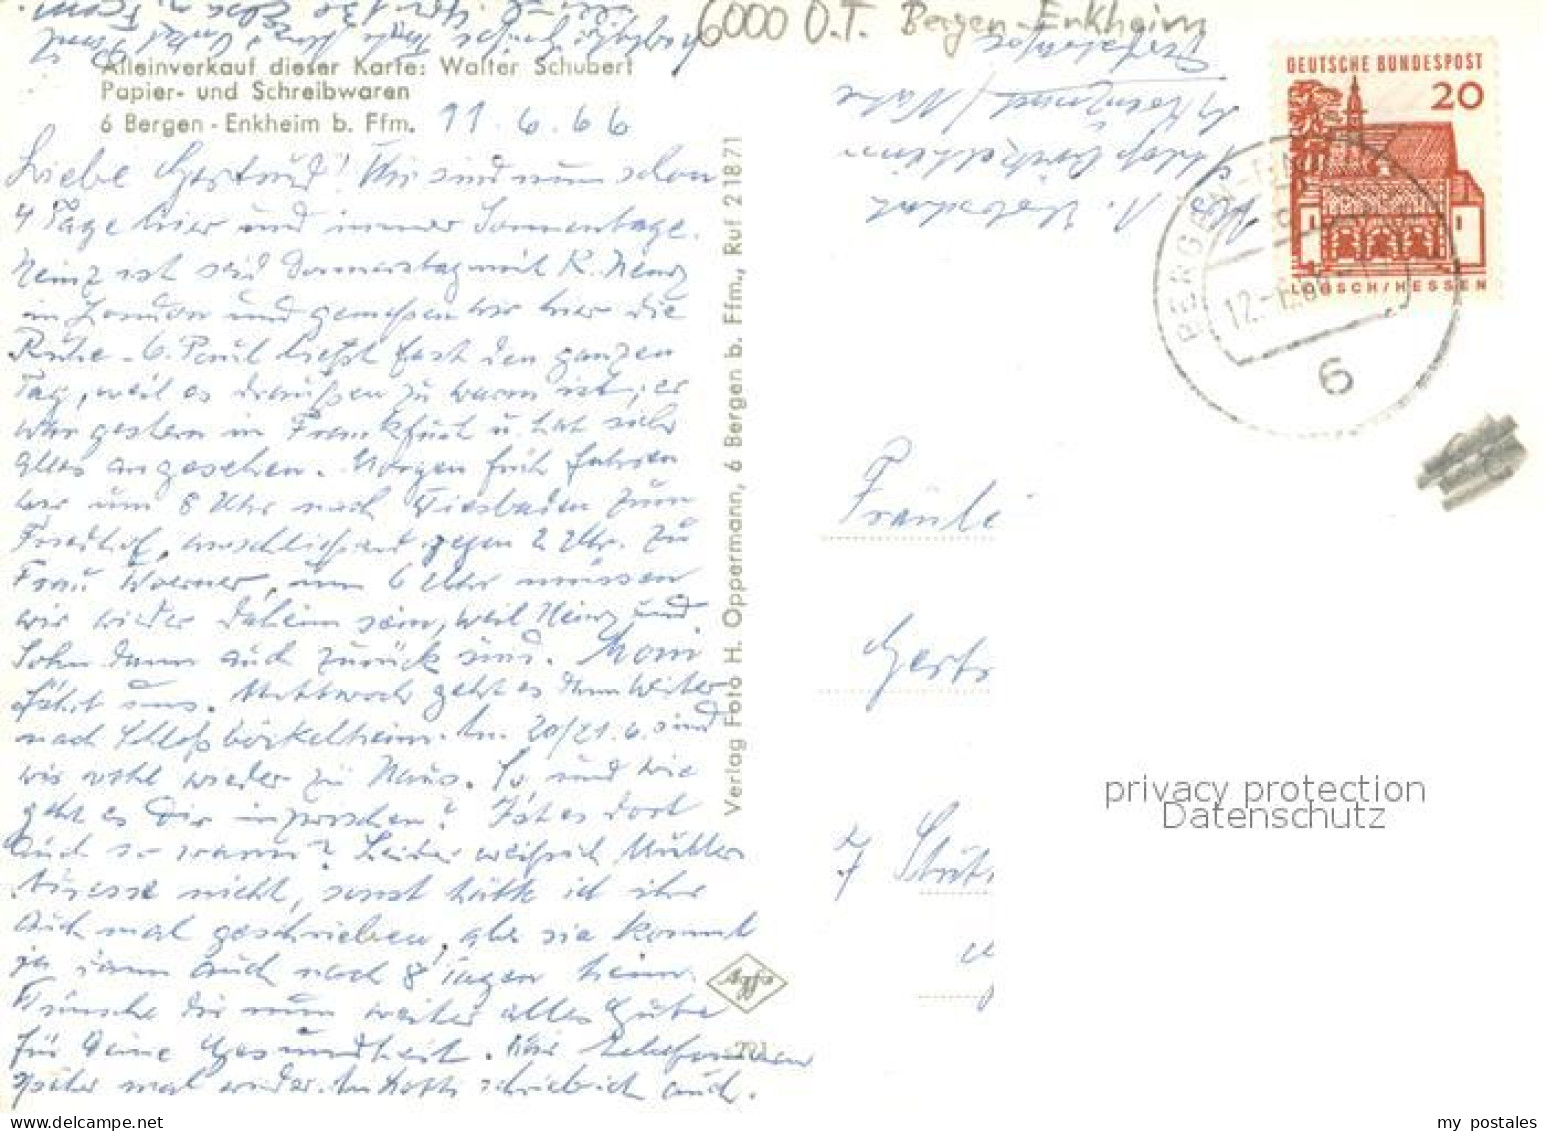 6000 O.T. Bergen-Enkheim
Alleinverkauf dieser Karte: Walter Schubert
Papier- und Schreibwaren
6 Bergen - Enkheim b. Ffm. 11.6.66
Liebe Gertrud! Wir sind nun schon
4 Tage hier und immer Sonnentage.
Heinz ist seid Donnerstag mit K. Heinz
in London und genießen wir hier die
Ruhe - G. Paul liegt fast den ganzen
Tag, weil es draußen zu warm ist, er
war gestern in Frankfurt u. hat sich
alles angesehen. Morgen früh fahren
wir um 8 Uhr nach Wiesbaden zum
Friedhof, anschließend gegen 2 Uhr zu
Frau Woerner, um 6 Uhr müssen
wir wieder daheim sein, weil Heinz und
Sohn dann auch zurück sind. Moni
fährt uns. Mittwoch geht es dann weiter
nach Schloßböckelheim. Am 20/21.6. sind
wir wohl wieder zu Haus. So, und wie
geht es Dir inzwischen? Ist es dort
auch so warm? Leider weiß ich Mutters
Adresse nicht, sonst hätte ich ihr
auch mal geschrieben, aber sie kommt
ja dann auch nach 8 Tagen heim.
Wünsche dir nun weiter alles Gute
für Deine Gesundheit. Wir telefonieren
später mal wieder. An Käthe schreibe ich auch.
Verlag Foto H. Oppermann, 6 Bergen b. Ffm., Ruf 21871
Agfa
DEUTSCHE BUNDESPOST
20
LORSCH/HESSEN
BERGEN-EN
12.-6.66
6
Fräule
Gertr
7 Stut
privacy protection
Datenschutz
my postales